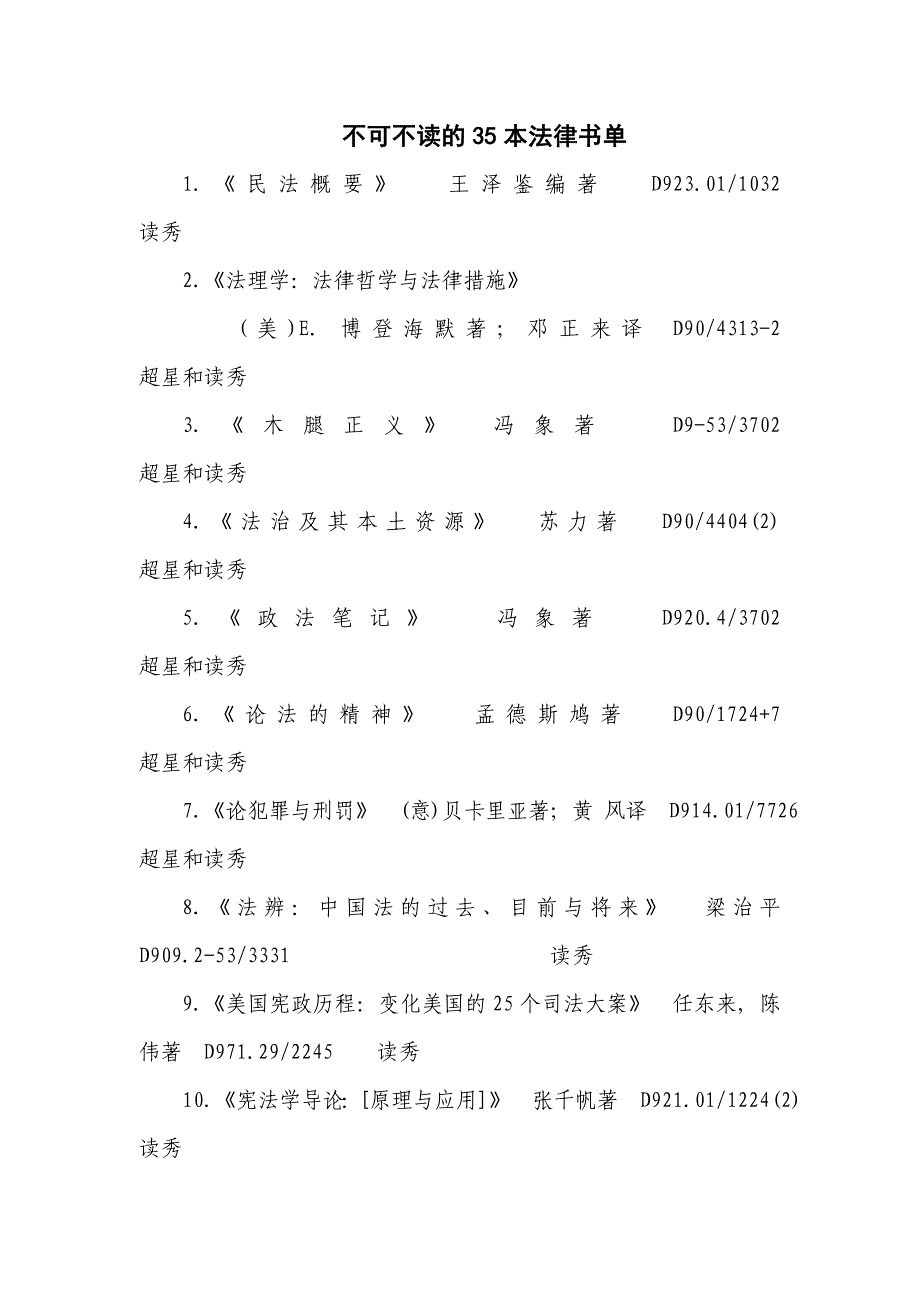 不可不读的35本法律书单
1.《民法概要》 王泽鉴编著 D923.01/1032
读秀
2.《法理学:法律哲学与法律措施》
(美)E.博登海默著;邓正来译 D90/4313-2
超星和读秀
3.《木腿正义》 冯象著 D9-53/3702
超星和读秀
4.《法治及其本土资源》 苏力著 D90/4404(2)
超星和读秀
5.《政法笔记》 冯象著 D920.4/3702
超星和读秀
6.《论法的精神》 孟德斯鸠著 D90/1724+7
超星和读秀
7.《论犯罪与刑罚》 (意)贝卡里亚著;黄 风译 D914.01/7726
超星和读秀
8.《法辨:中国法的过去、目前与将来》 梁治平
D909.2-53/3331 读秀
9.《美国宪政历程:变化美国的25个司法大案》 任东来,陈
伟著 D971.29/2245 读秀
10.《宪法学导论:[原理与应用]》 张千帆著 D921.01/1224(2)
读秀